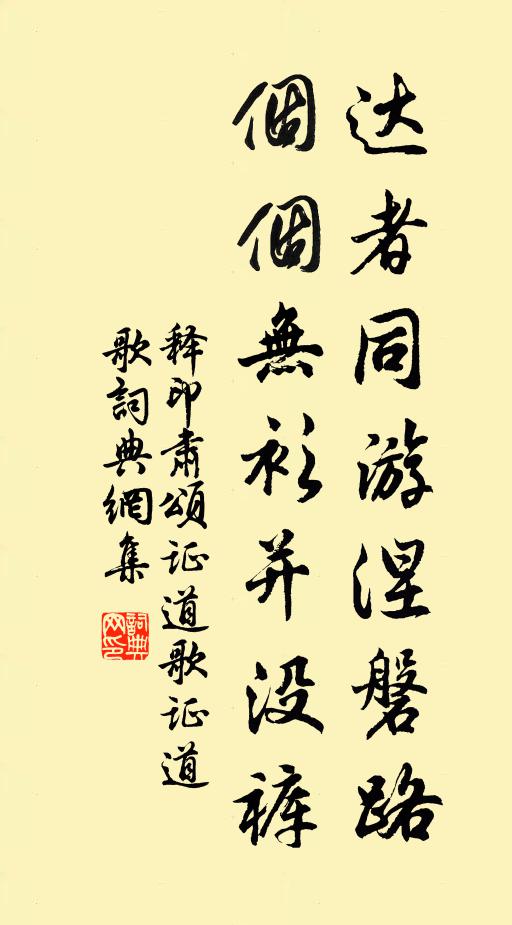 达者同游涅磐路
個個無衫并没裤
释印肃颂证道歌证道
歌詞典網集
詞典网印